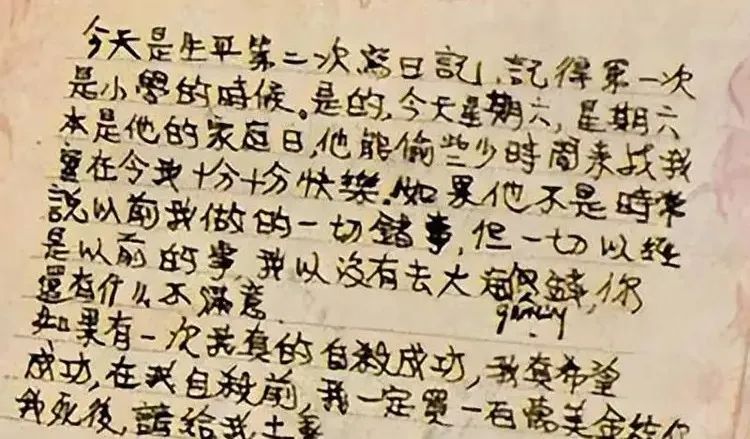 今天是生平第二次寫日記,記得第一次
是小學的時候。是的,今天星期六,星期六
本是他的家庭日,他能偷些少時間來找我
實在令我十分十分快樂。如果他不是時常
說以前我做的一切錯事,但一切以經
是以前的事,我以沒有去大 錢,你
還有什么不滿意
如果有一次我真的自殺成功,我真希望
成功,在我自殺前,我一定買一百萬美金給你
我死後,請給我